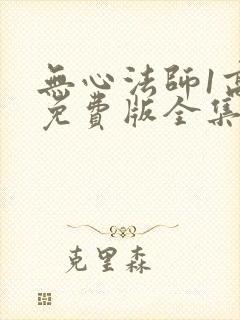 無心法師1高
免費版全集
克里森